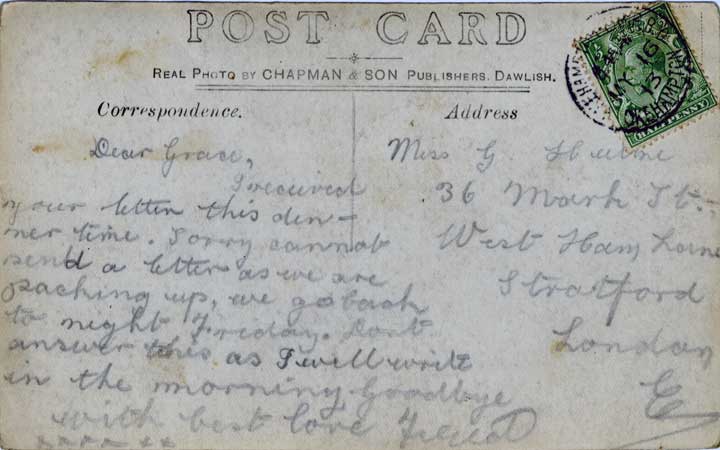 POST CARD
REAL PHOTO BY CHAPMAN & SON PUBLISHERS. DAWLISH.
Correspondence.
Dear Grace,
I received
your letter this din-
ner time. Sorry cannot
send a letter as we are
packing up, we go back
to night Friday. Dont
answer this as I will write
in the morning Goodbye
with best love Fred
xxxx xx
Address
Miss G.
36 Mark St.
West Ham Lane
Stratford
London
E
MY 16
13
HALFPENNY